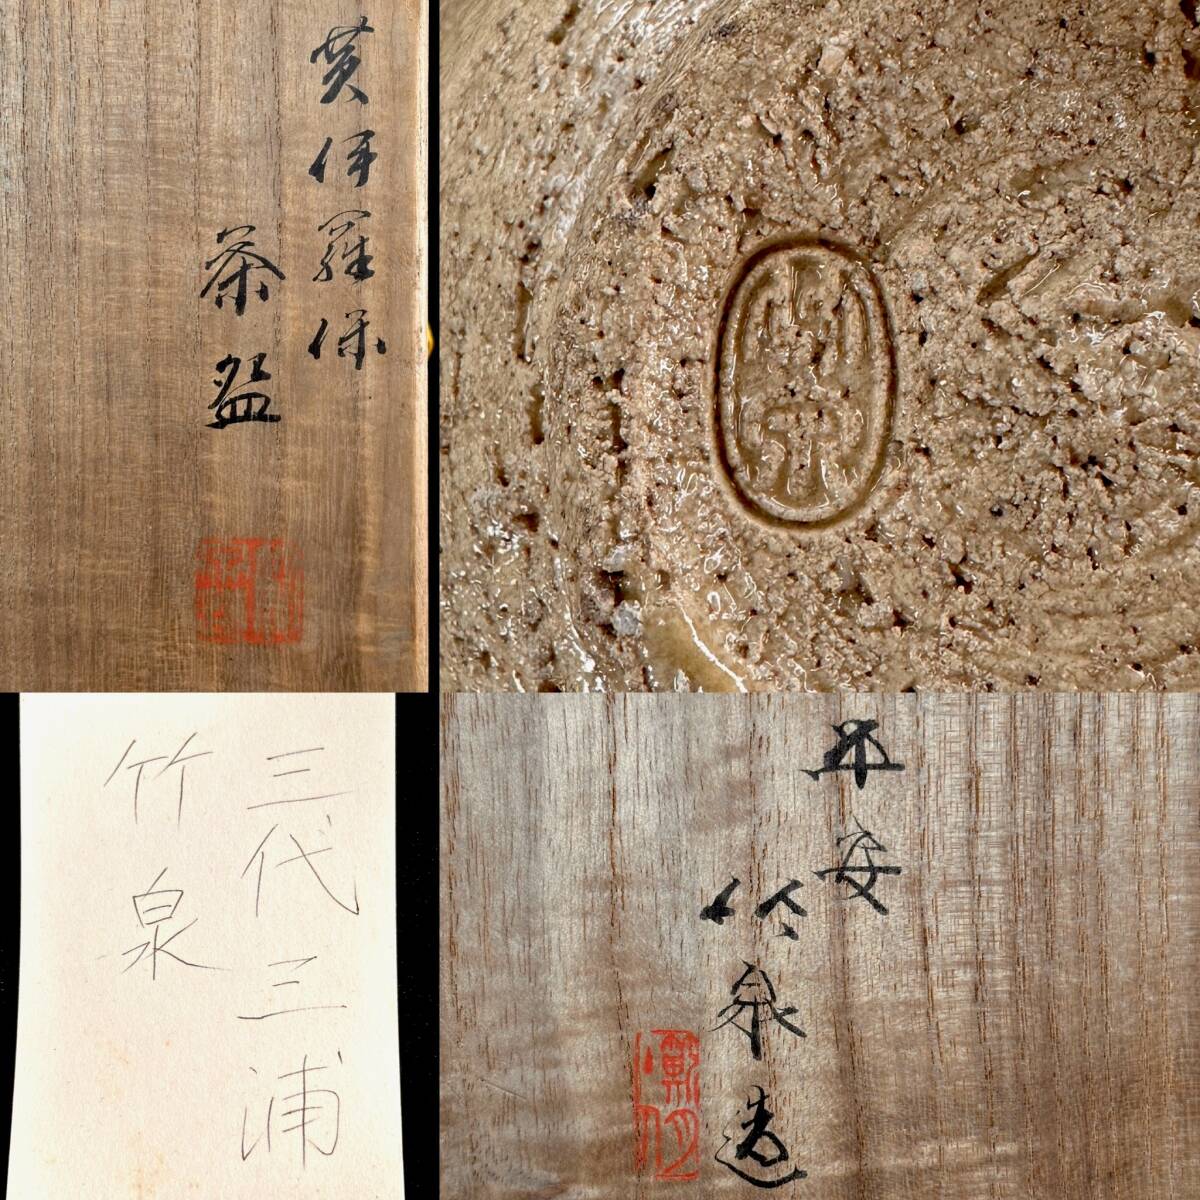 黄伊羅保
茶盌
三代三浦
竹泉
平安
竹泉造